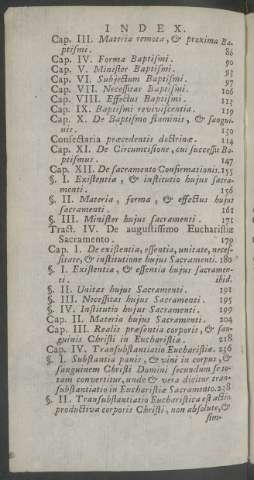 INDEX.
Cap. III. Materia remota, & proxima Ba-
ptismi. 86
Cap. IV. Forma Baptismi. 90
Cap. V. Minister Baptismi. 93
Cap. VI. Subjectum Baptismi. 97
Cap. VII. Necessitas Baptismi. 106
Cap. VIII. Effectus Baptismi. 113
Cap. IX. Baptismi reviviscentia. 119
Cap. X. De Baptismo flaminis, & sangui-
nis. 130
Consectaria præcedentis doctrinæ. 114
Cap. XI. De Circumcisione, cui successit Ba-
ptismus. 147
Cap. XII. De sacramento Confirmationis. 155
§. I. Existentia, & institutio hujus sacra-
menti. 156
§. II. Materia, forma, & effectus hujus
sacramenti. 161
§. III. Minister hujus sacramenti. 171
Tract. IV. De augustissimo Eucharistiæ
Sacramento. 179
Cap. I. De existentia, essentia, unitate, neces-
sitate, & institutione hujus Sacramenti. 180
§. I. Existentia, & essentia hujus sacramen-
ti. ibid.
§. II. Unitas hujus Sacramenti. 191
§. III. Necessitas hujus Sacramenti. 195
§. IV. Institutio hujus Sacramenti. 199
Cap. II. Materia hujus Sacramenti. 204
Cap. III. Realis præsentia corporis, & san-
guinis Christi in Eucharistia. 218
Cap. IV. Transubstantiatio Eucharistiæ. 236
§. I. Substantia panis, & vini in corpus, &
sanguinem Christi Domini secundum se to-
tam convertitur, unde & vera dicitur tran-
substantiatio in Eucharistiæ Sacramento. 238
§. II. Transubstantiatio Eucharistica est actio
productiva corporis Christi, non absolute, &
sim-